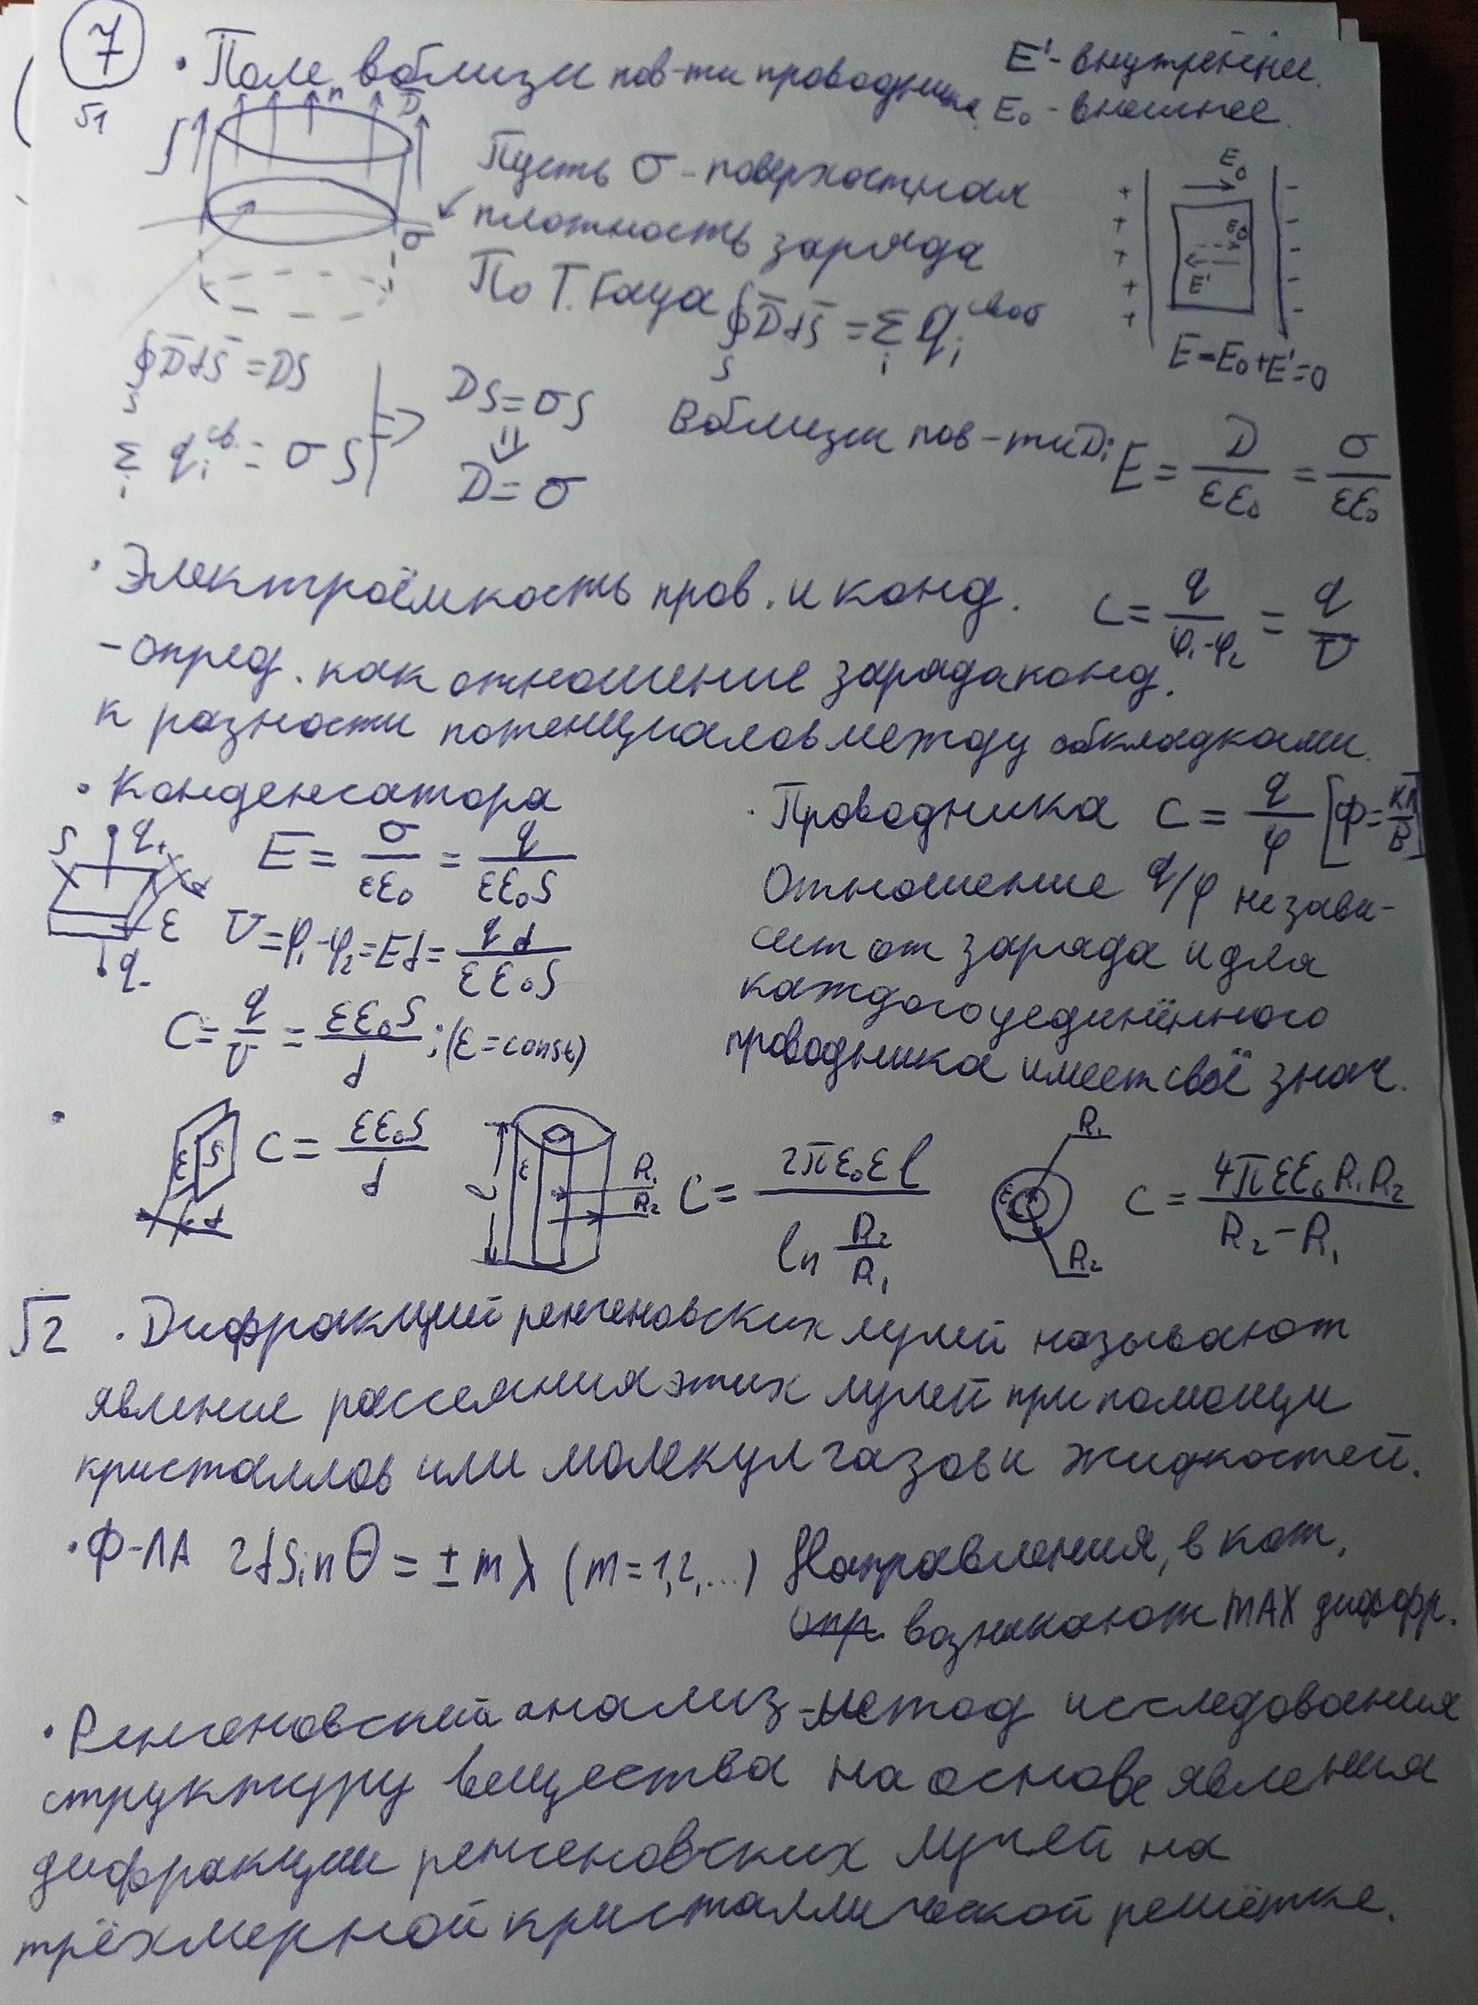 7
√1
• Поле вблизи пов-ти проводника
E' - внутреннее
E₀ - внешнее.
n D
S
σ
Пусть σ - поверхостная
плотность заряда
По Т. Гауса ∮D̅dS̅ = Σ qᵢ своб
S i
E₀
E₀
E'
+ + + + +
- - - - -
E = E₀ + E' = 0
∮D̅dS̅ = DS
S
Σ qᵢ св. = σ S
i
=> DS = σS
⇓
D = σ
Вблизи пов-ти D: E = D/εε₀ = σ/εε₀
• Электроёмкость пров. и конд. C = q/φ₁-φ₂ = q/U
- опред. как отношение заряда конд.
к разности потенциалов между обкладками.
• Конденсатора
S q₊ d ε q₋
E = σ/εε₀ = q/εε₀S
U = φ₁-φ₂ = Ed = qd/εε₀S
C = q/U = εε₀S/d ; (ε = const)
• Проводника C = q/φ [Ф = Кл/В]
Отношение q/φ не зави-
сит от заряда и для
каждого уединённого
проводника имеет своё знач.
• ε S d C = εε₀S/d
ε R₁ R₂ C = 2πε₀εl / ln R₂/R₁
R₁ ε R₂ C = 4πεε₀R₁R₂ / R₂-R₁
√2 • Дифракций ренгеновских лучей называют
явление рассеяния этих лучей при помощи
кристаллов или молекул газов и жидкостей.
• Ф-ЛА 2dSinθ = ±mλ (m=1,2,...) Направления, в кот.
возникают MAX дифр.
• Ренгеновский анализ - метод исследования
структуру вещества на основе явления
дифракции ренгеновских лучей на
трёхмерной кристаллической решётке.